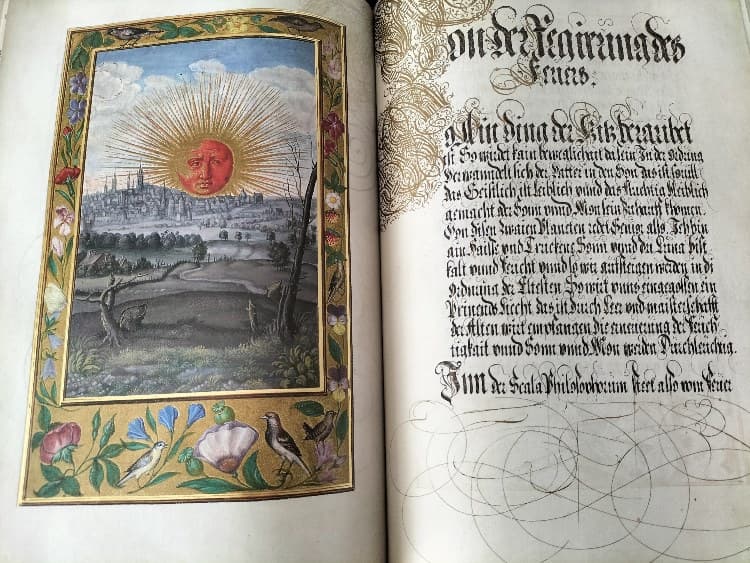 Von der Regierung des
Feuers.
Ain ding der hitz beraubet
ist So wurdt kain beweglichait da sein In der ordnung
Verwandelt sich der Vatter in den Son das ist souill
das Geistlich ist leiblich vnnd das fluchtig bleiblich
gemacht der Sonn vnnd Mon sein zuhauß khomen.
Von disen Zwaien Planeten redt Senior also. Ich bin
ain haisse vnd Truckene Sonn vnnd du Luna bist
kalt vnnd feucht vnnd so wir auffsteigen werden in die
ordnung der Eltesten So wirt vnns eingegossen ein
Prinends liecht das ist durch Leer vnd maisterschafft
der Alten wirt empfangen die erneuerung der feuch
tigkait vnnd Sonn vnnd Mon werden Durchleuchtig.
Inn der Scala Philosophorum steet also vom feuer